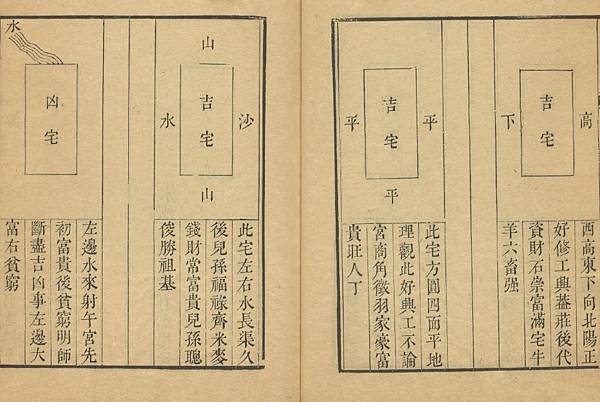 高
吉宅
下
西高東下向北陽正
好修工興蓋莊後代
資財石崇富滿宅牛
羊六畜强
平
吉宅
平
平
此宅方圓四面平地
理觀此好興工不論
宮商角徵羽家豪富
貴旺人丁
山
沙
吉宅
水
山
此宅左右水長渠久
後兒孫福祿齊米麥
錢財常富貴兒孫聰
俊勝祖基
水
凶宅
左邊水來射午宮先
初富貴後貧窮明師
斷盡吉凶事左邊大
富右貧窮